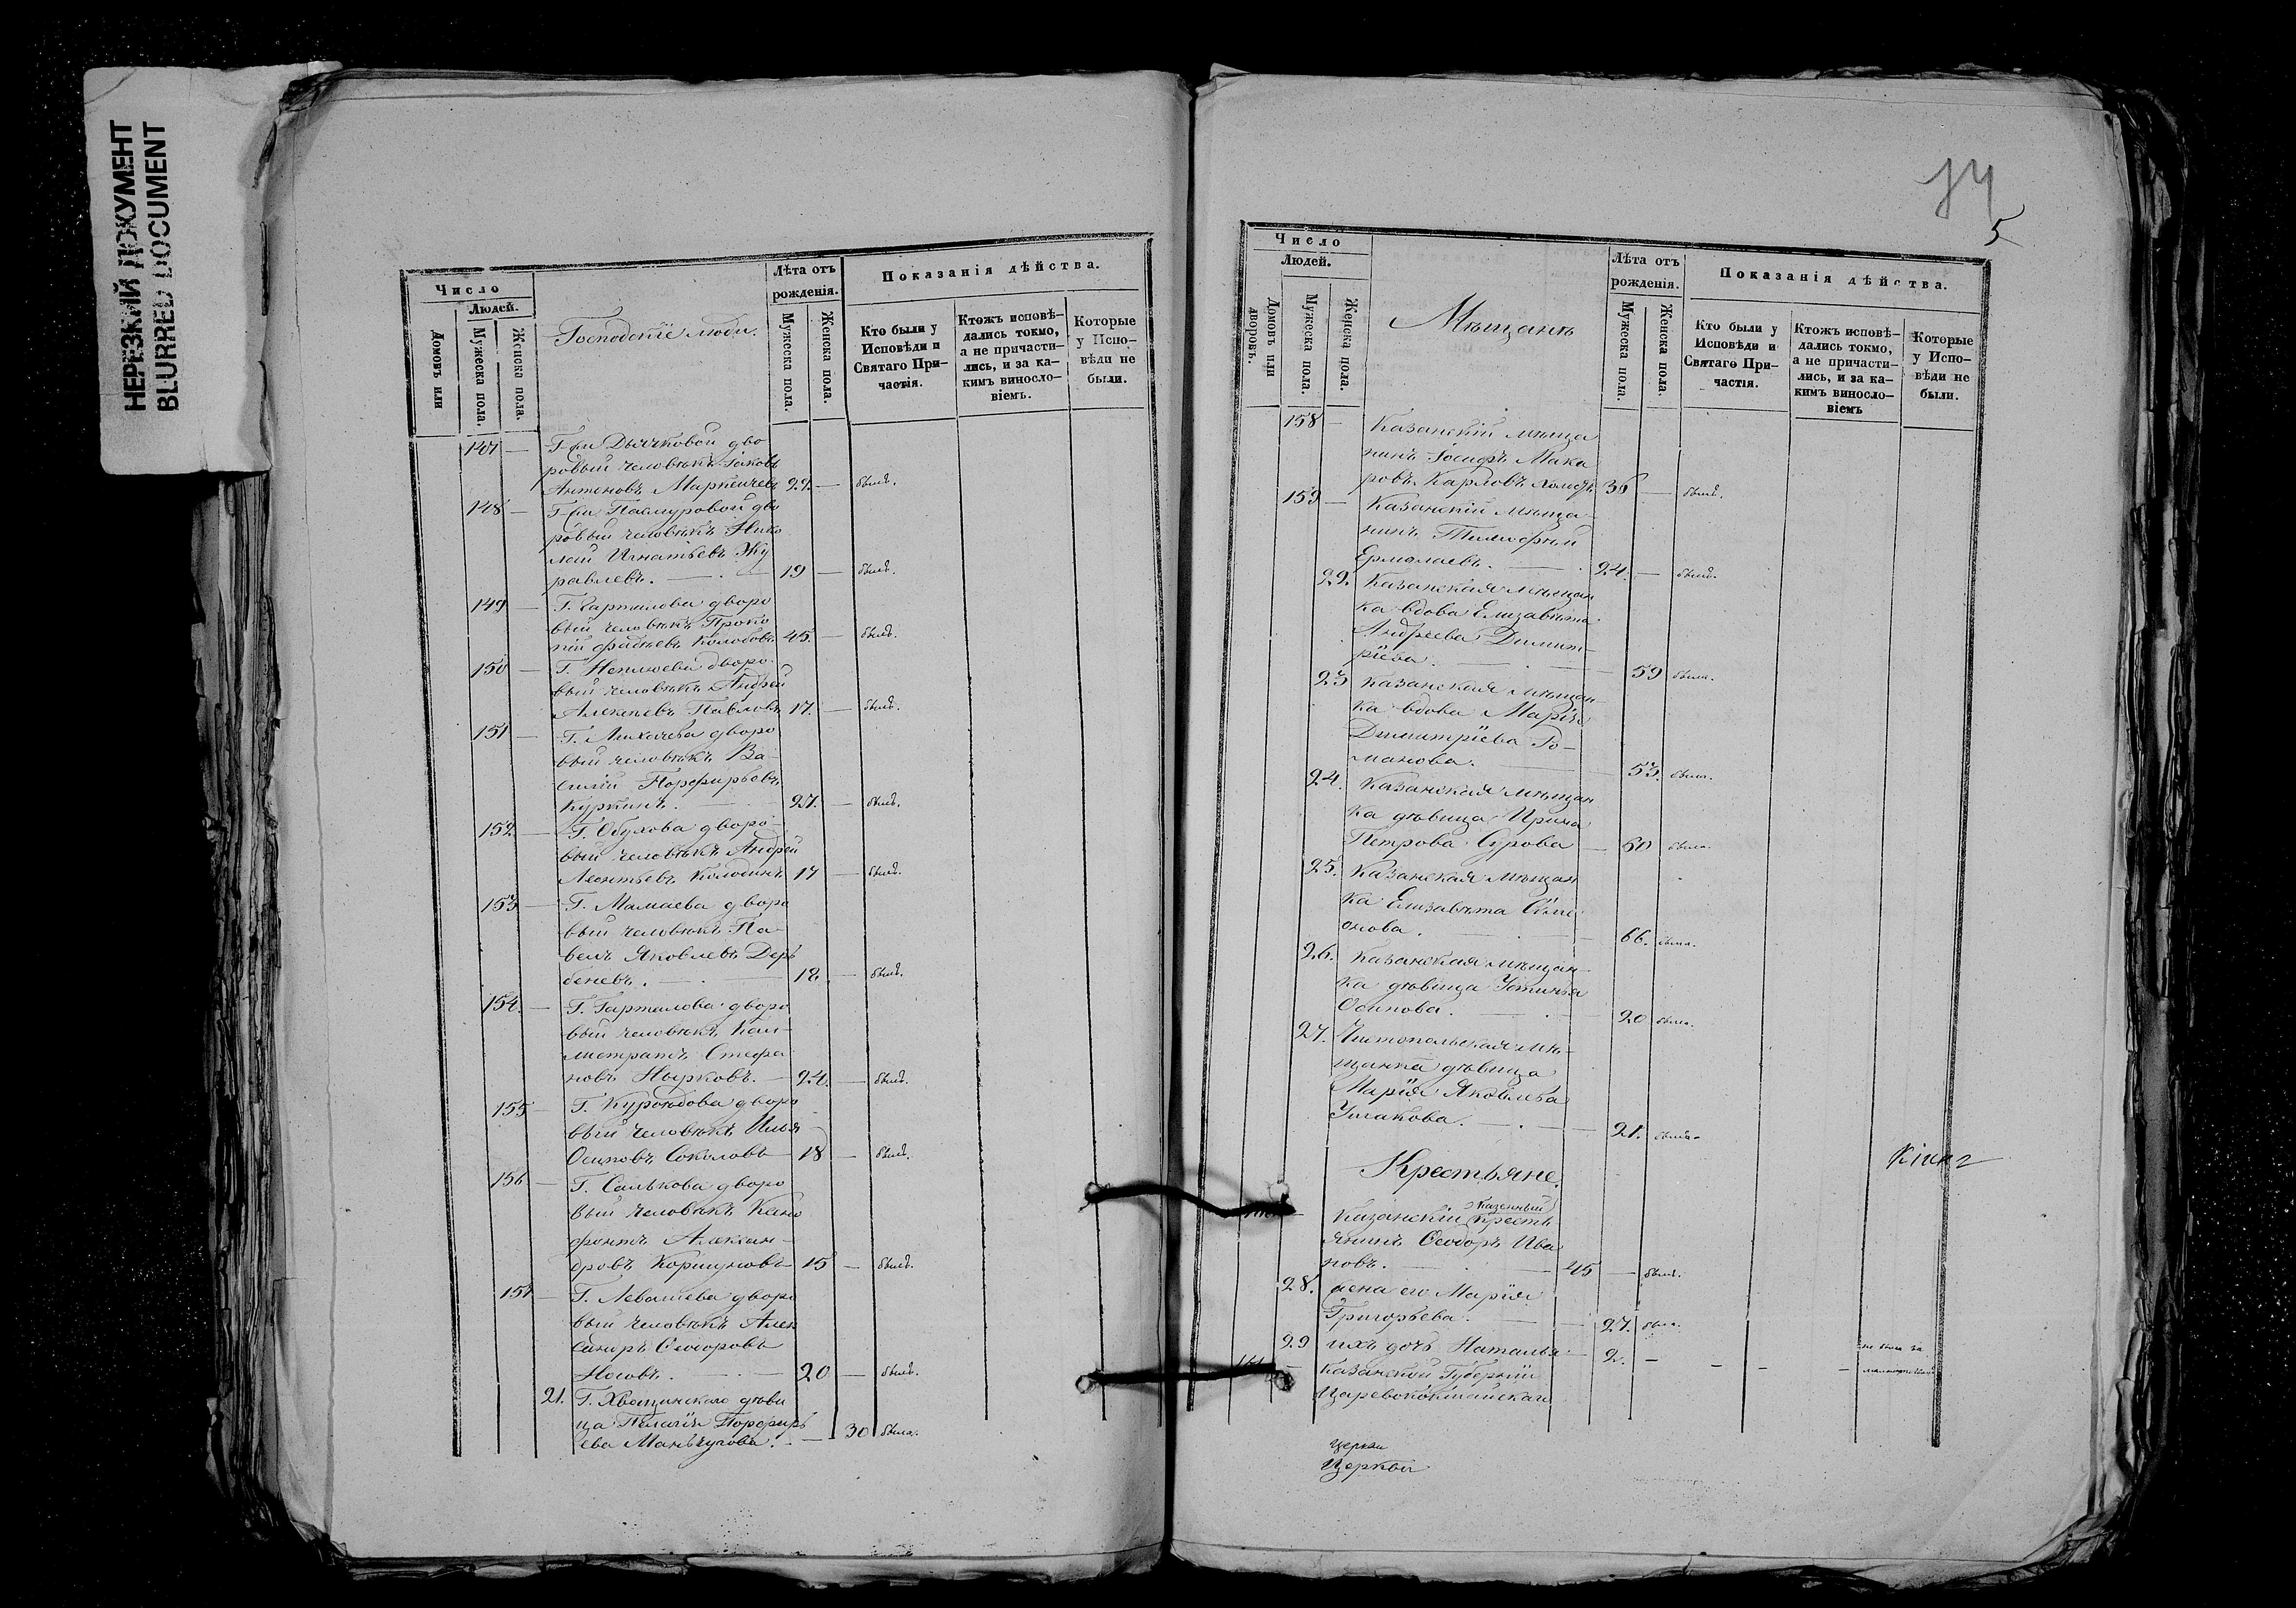 НЕРЕЗКИЙ ДОКУМЕНТ
BLURRED DOCUMENT
Число
Людей.
Домовъ или
Мужеска пола.
Женска пола.
Господскіе люди.
Лѣта отъ
рожденія.
Мужеска пола.
Женска пола.
Показанія дѣйства.
Кто были у
Исповѣди и
Святаго При-
частія.
Ктожъ исповѣ-
дались токмо,
а не причасти-
лись, и за ка-
кимъ винosло-
віемъ.
Которые
у Испо-
вѣди не
были.
147 — Г-жи Дьячковой дво
ровый человѣкъ Іаковъ
Антоновъ 22. — былъ.
148 — Г-жи дво
ровый человѣкъ Нико
лай Игнатьевъ Жу
равлевъ. — 19 — былъ.
149 — Г. дворо
вый человѣкъ Проко
пій 45. — былъ.
150 — Г. Неплюева дворо-
вый человѣкъ Андрей
Алексѣевъ Павловъ 17. — былъ.
151 — Г. Лихачева дворо
вый человѣкъ Ва-
силій Порфирьевъ
Куркинъ. — 27. — былъ.
152 — Г. Обухова дворо-
вый человѣкъ Андрей
Леонтьевъ 17 — былъ.
153 — Г. Мамаева дворо
вый человѣкъ Па-
велъ Яковлевъ Дер
беневъ. — 18. — былъ.
154. — Г. Гарталова дворо
вый человѣкъ Кал-
листратъ Стефа
новъ Нырковъ. — 24. — былъ.
155 — Г. Куроѣдова дворо
вый человѣкъ Илья
Осиповъ Соколовъ 18 — былъ.
156 — Г. Салькова дворо
вый человѣкъ Ксено
фонтъ Алексан-
дровъ Коршуновъ 15 — былъ.
157 — Г. Левашева дворо
вый человѣкъ Алек
сандръ Ѳеодоровъ
Носовъ. — 20 — былъ.
21. Г. Хвощинскаго дѣви
ца Пелагія Порфирь
ева — 30 была.
14
5
Число
Людей.
Домовъ или
дворовъ.
Мужеска пола.
Женска пола.
Мѣщанъ
Лѣта отъ
рожденія.
Мужеска пола.
Женска пола.
Показанія дѣйства.
Кто были у
Исповѣди и
Святаго При-
частія.
Ктожъ исповѣ-
дались токмо,
а не причасти-
лись, и за ка-
кимъ винosло-
віемъ
Которые
у Испо-
вѣди не
были.
158 — Казанскій мѣща
нинъ Іосифъ Мака
ровъ Карповъ холостъ 36 — былъ.
159 — Казанскій мѣща-
нинъ Тимофѣй
Ермолаевъ. — 24. — былъ.
22. Казанская мѣщан
ка вдова Елизавѣта
Андреева Димит-
ріева. — 59 была.
23 Казанская мѣщан-
ка вдова Марія
Димитріева Ро-
манова. — 53. была.
24. Казанская мѣщан
ка дѣвица Ирина
Петрова Сурова — 60 была.
25. Казанская мѣщан
ка Елизавѣта Симе-
онова. — 66. была.
26. Казанская мѣщан-
ка дѣвица Устинья
Осипова. — 20 была.
27. Чистопольская мѣ-
щанка дѣвица
Марія Яковлева
Ушакова. — 21. была.
Крестьяне.
казенный
Казанскій кресть
янинъ Ѳеодоръ Ива
новъ. — 45 — былъ.
28. жена его Марія
Григорьева. — 27. была.
29 ихъ дочь Наталья — 2. — — — — не была за
малолѣтствомъ
Казанской Губерніи
Царевококшайскаго
церкви
Церкви